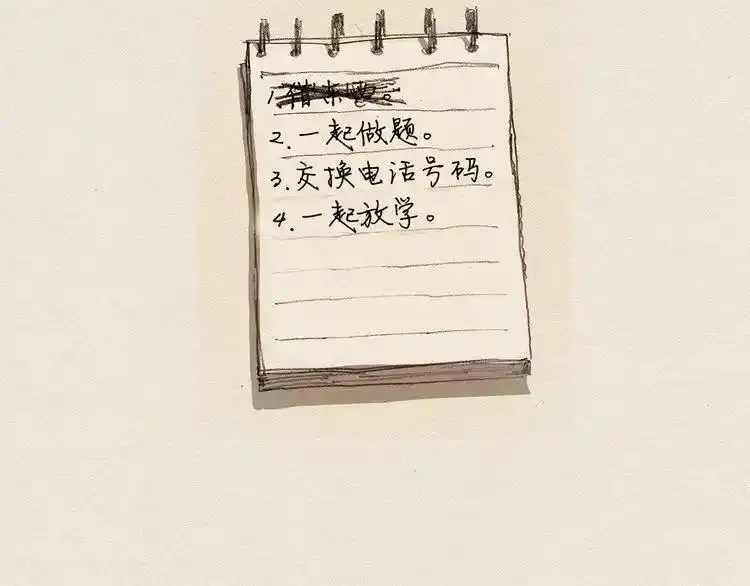 1.借东西。
2.一起做题。
3.交换电话号码。
4.一起放学。